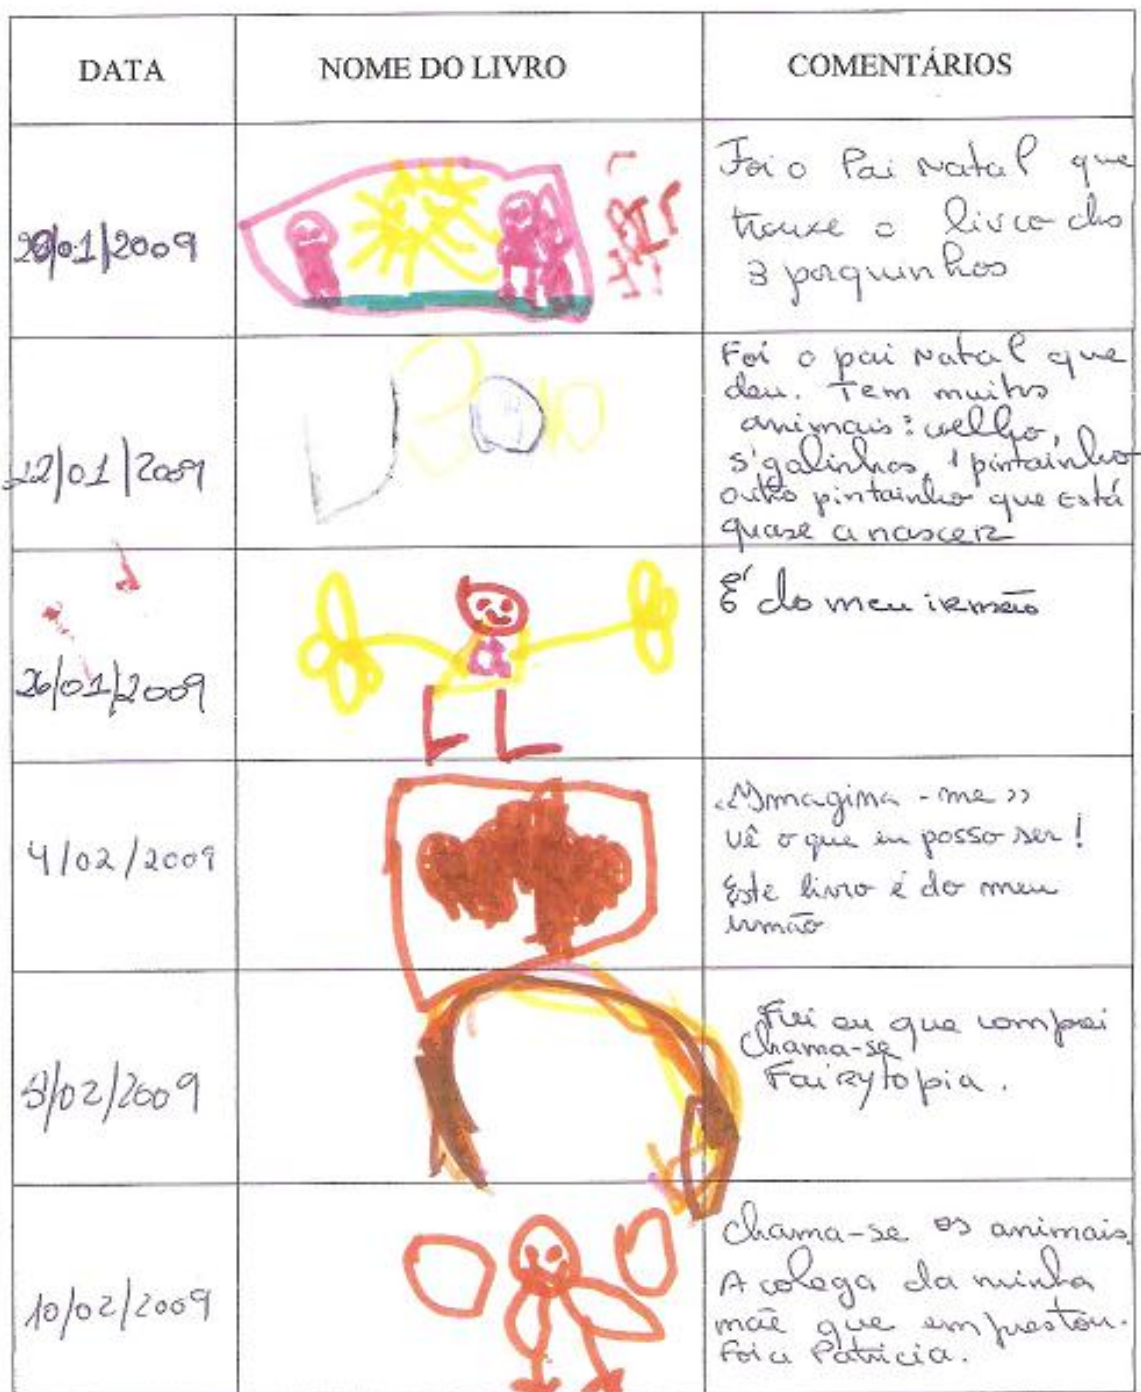 DATA
NOME DO LIVRO
COMENTÁRIOS
20/01/2009
Foi o Pai Natal que
trouxe o livro dos
3 porquinhos
22/01/2009
Foi o pai Natal que
deu. Tem muitos
animais: coelho,
5 galinhas, 1 pintainho
outro pintainho que está
quase a nascer
26/01/2009
É do meu irmão
4/02/2009
«Imagina-me»
vê o que eu posso ser!
Este livro é do meu
irmão
/02/2009
Fui eu que comprei
Chama-se
Fairytopia.
10/02/2009
Chama-se os animais.
A colega da minha
mãe que emprestou.
Foi a Patrícia.